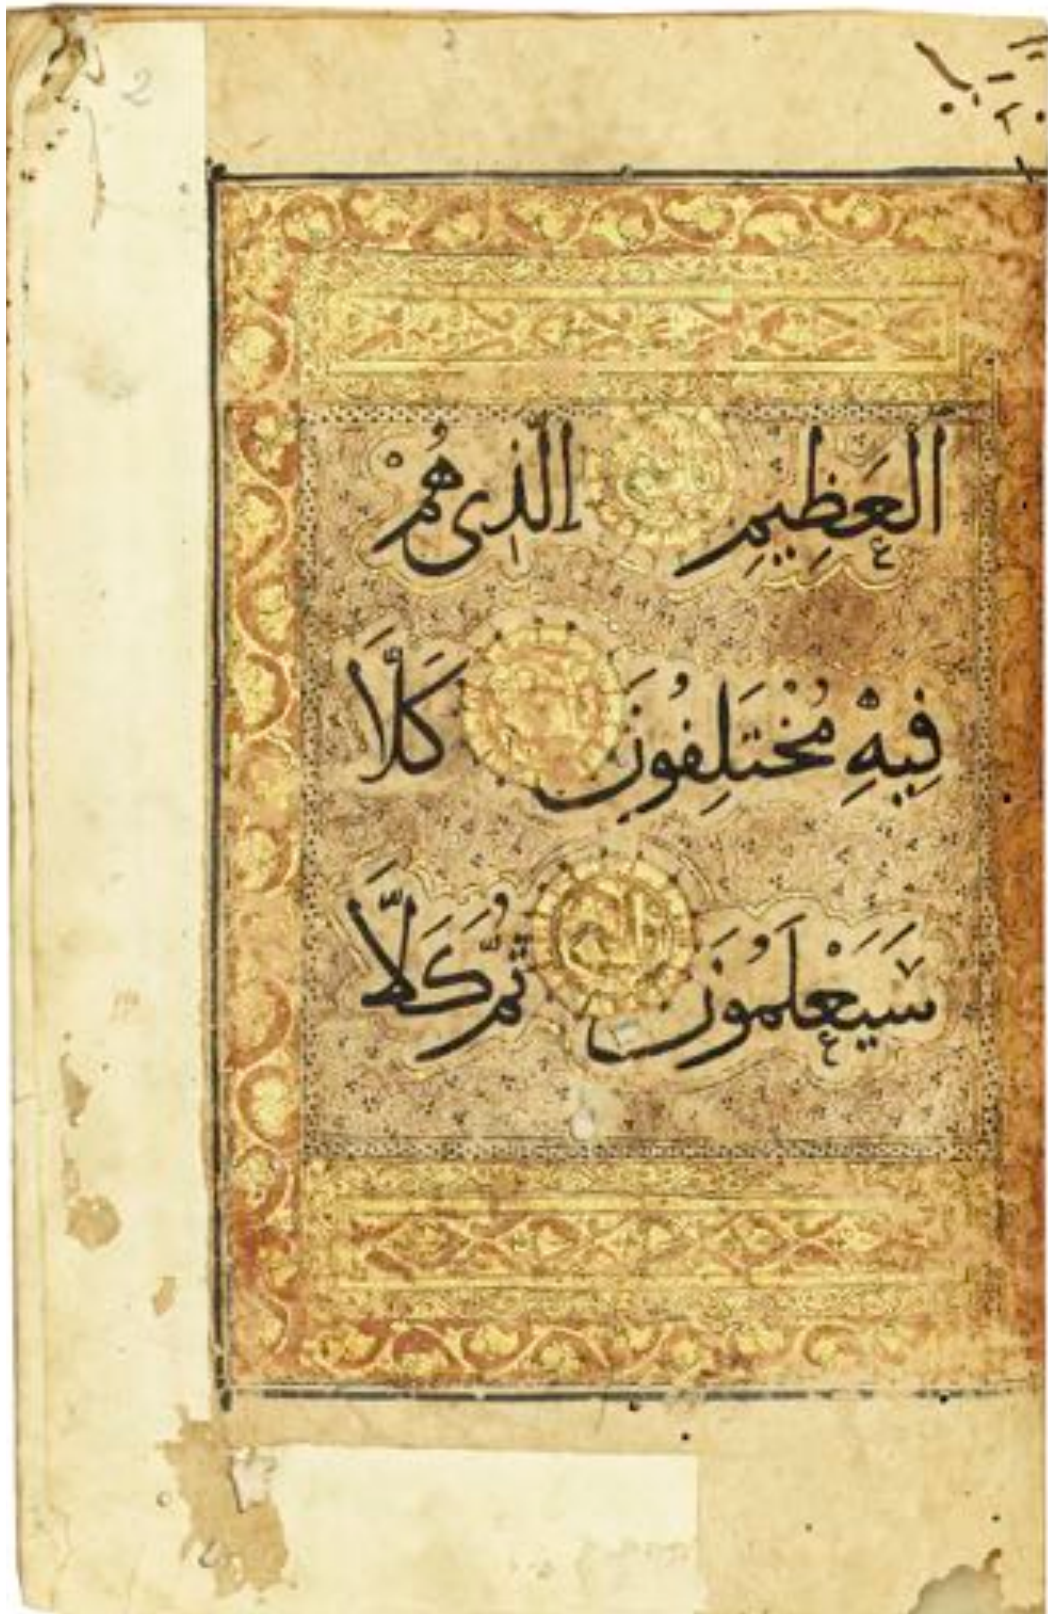 2
الْعَظِيمِ الَّذِى هُمْ
فِيهِ مُخْتَلِفُونَ كَلَّا
سَيَعْلَمُونَ ثُمَّ كَلَّا